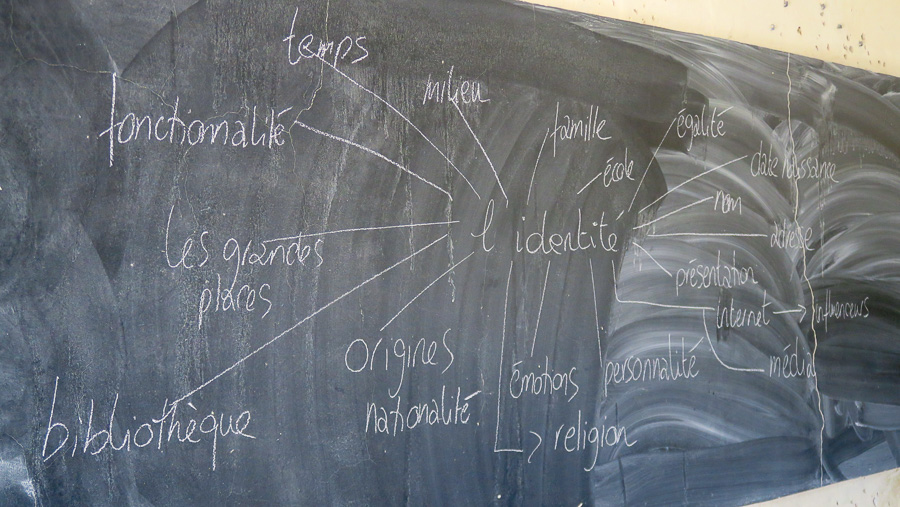 temps
milieu
fonctionnalité
famille
égalité
école
date naissance
nom
l'identité
adresse
les grandes
places
présentation
internet
influenceurs
origines
nationalité
émotions
personnalité
média
bibliothèque
religion